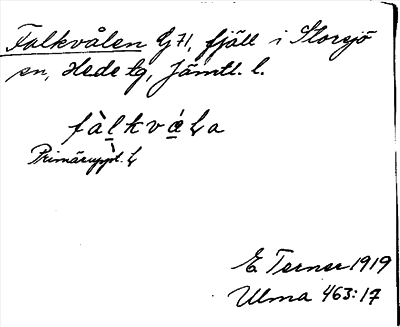 Falkvålen G 71, fjäll i Storsjö
sn, Hede tg, Jämtl. l.
fàlkvåla
Primäruppt. L
E Terner 1919
Ulma 463:17